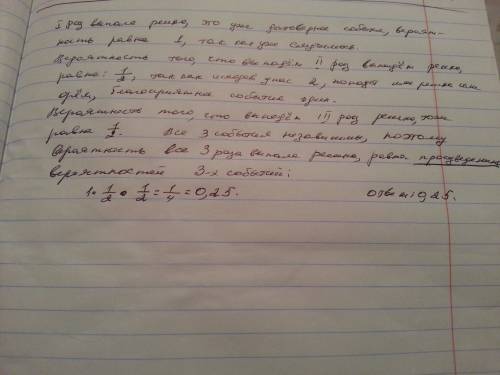 I раз выпала решка, это уже достоверное событие, вероят-
ность равна 1, так как уже случилось.
Вероятность того, что выпадет II раз выпадет решка,
равна: 1/2, так как исходов у нас 2, попадет или решка или
орёл, благоприятное событие один.
Вероятность того, что выпадет III раз решка, тоже
равна 1/2. Все 3 события независимы, поэтому
вероятность все 3 раза выпала решка, равна произведению
вероятностей 3-х событий:
1 • 1/2 • 1/2 = 1/4 = 0,25. ответ: 0,25.